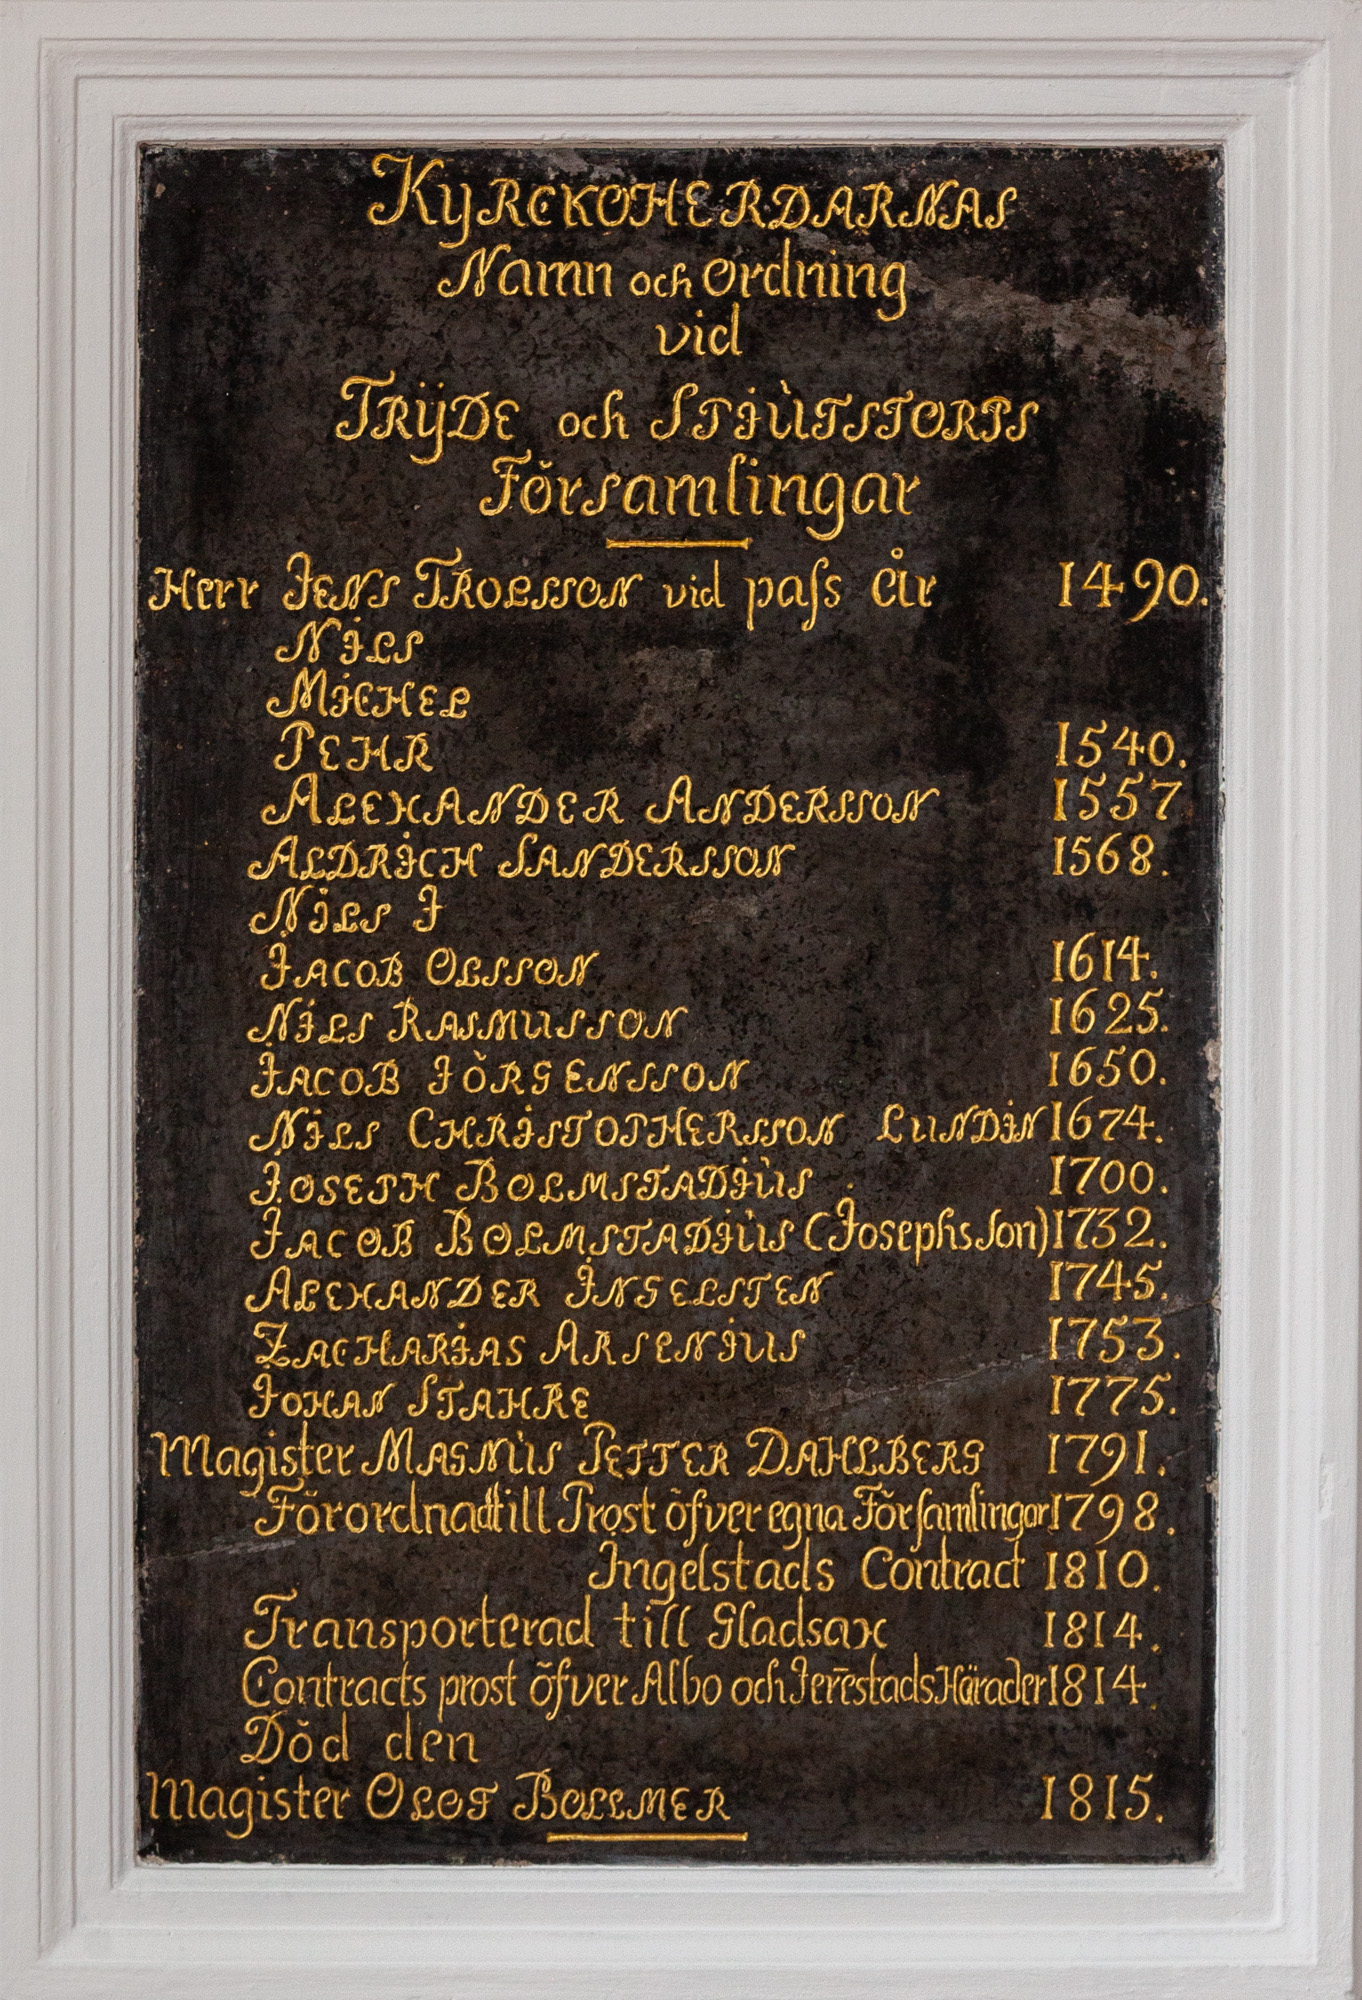 KYRCKOHERDARNAS
Namn och Ordning
vid
TRŸDE och STJÙTSTORPS
Församlingar
Herr JENS TROLSSON vid paſs år 1490.
NILS
MICHEL
PEHR 1540.
ALEXANDER ANDERSSON 1557
ALDRICH SANDERSSON 1568.
NILS J
JACOB OLSSON 1614.
NILS RASMUSSON 1625.
JACOB JÖRGENSSON 1650.
NILS CHRISTOPHERSSON LUNDIN 1674.
JOSEPH BOLMSTADIÙS 1700.
JACOB BOLMSTADIÙS (Josephsson) 1732.
ALEXANDER INGELSTEN 1745.
ZACHARIAS ARSENIUS 1753.
JOHAN STAHRE 1775.
Magister MAGNÙS PETTER DAHLBERG 1791.
Förordnad till Prost öfver egna Förſamlingar 1798.
Ingelstads Contract 1810.
Transporterad till Gladsax 1814.
Contracts prost öfver Albo och Jerestads Härader 1814.
Död den
Magister OLOF BOLLMER 1815.